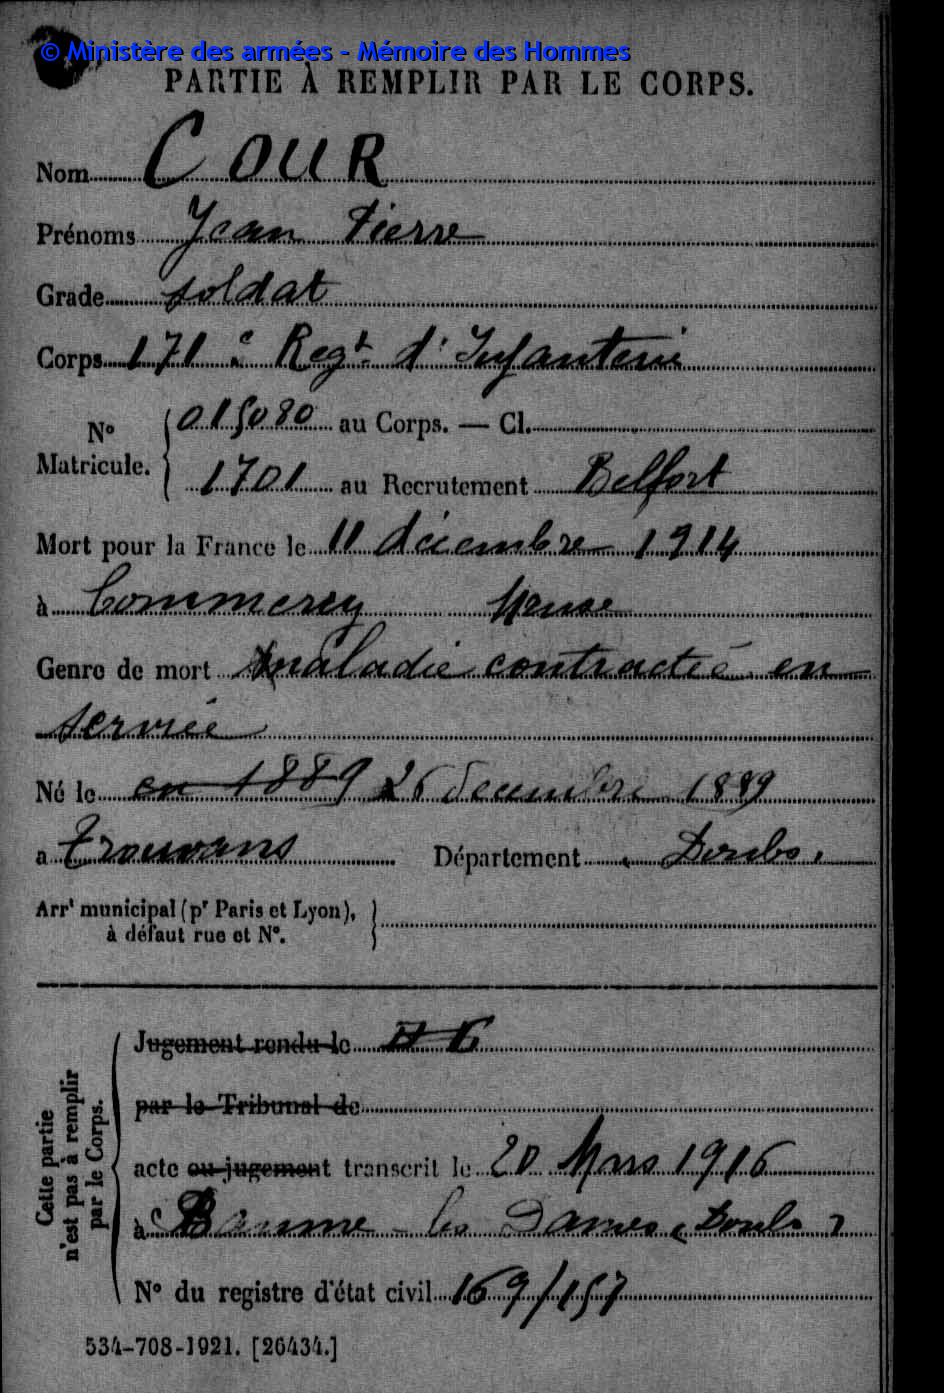 © Ministère des armées - Mémoire des Hommes
PARTIE À REMPLIR PAR LE CORPS.
Nom COUR
Prénoms Jean Pierre
Grade soldat
Corps 171e Regt d'Infanterie
No Matricule. 015080 au Corps. — Cl.
1701 au Recrutement Belfort
Mort pour la France le 11 décembre 1914
à Commercy Meuse
Genre de mort maladie contractée en
service
Né le en 1889 26 decembre 1889
a Trouvans Département (Doubs)
Arrt municipal (pr Paris et Lyon),
à défaut rue et No.
Cette partie
n'est pas à remplir
par le Corps.
Jugement rendu le
par le Tribunal de
acte ou jugement transcrit le 20 Mars 1916
à Baume-les Dames (Doubs)
No du registre d'état civil 169/157
534-708-1921. [26434.]